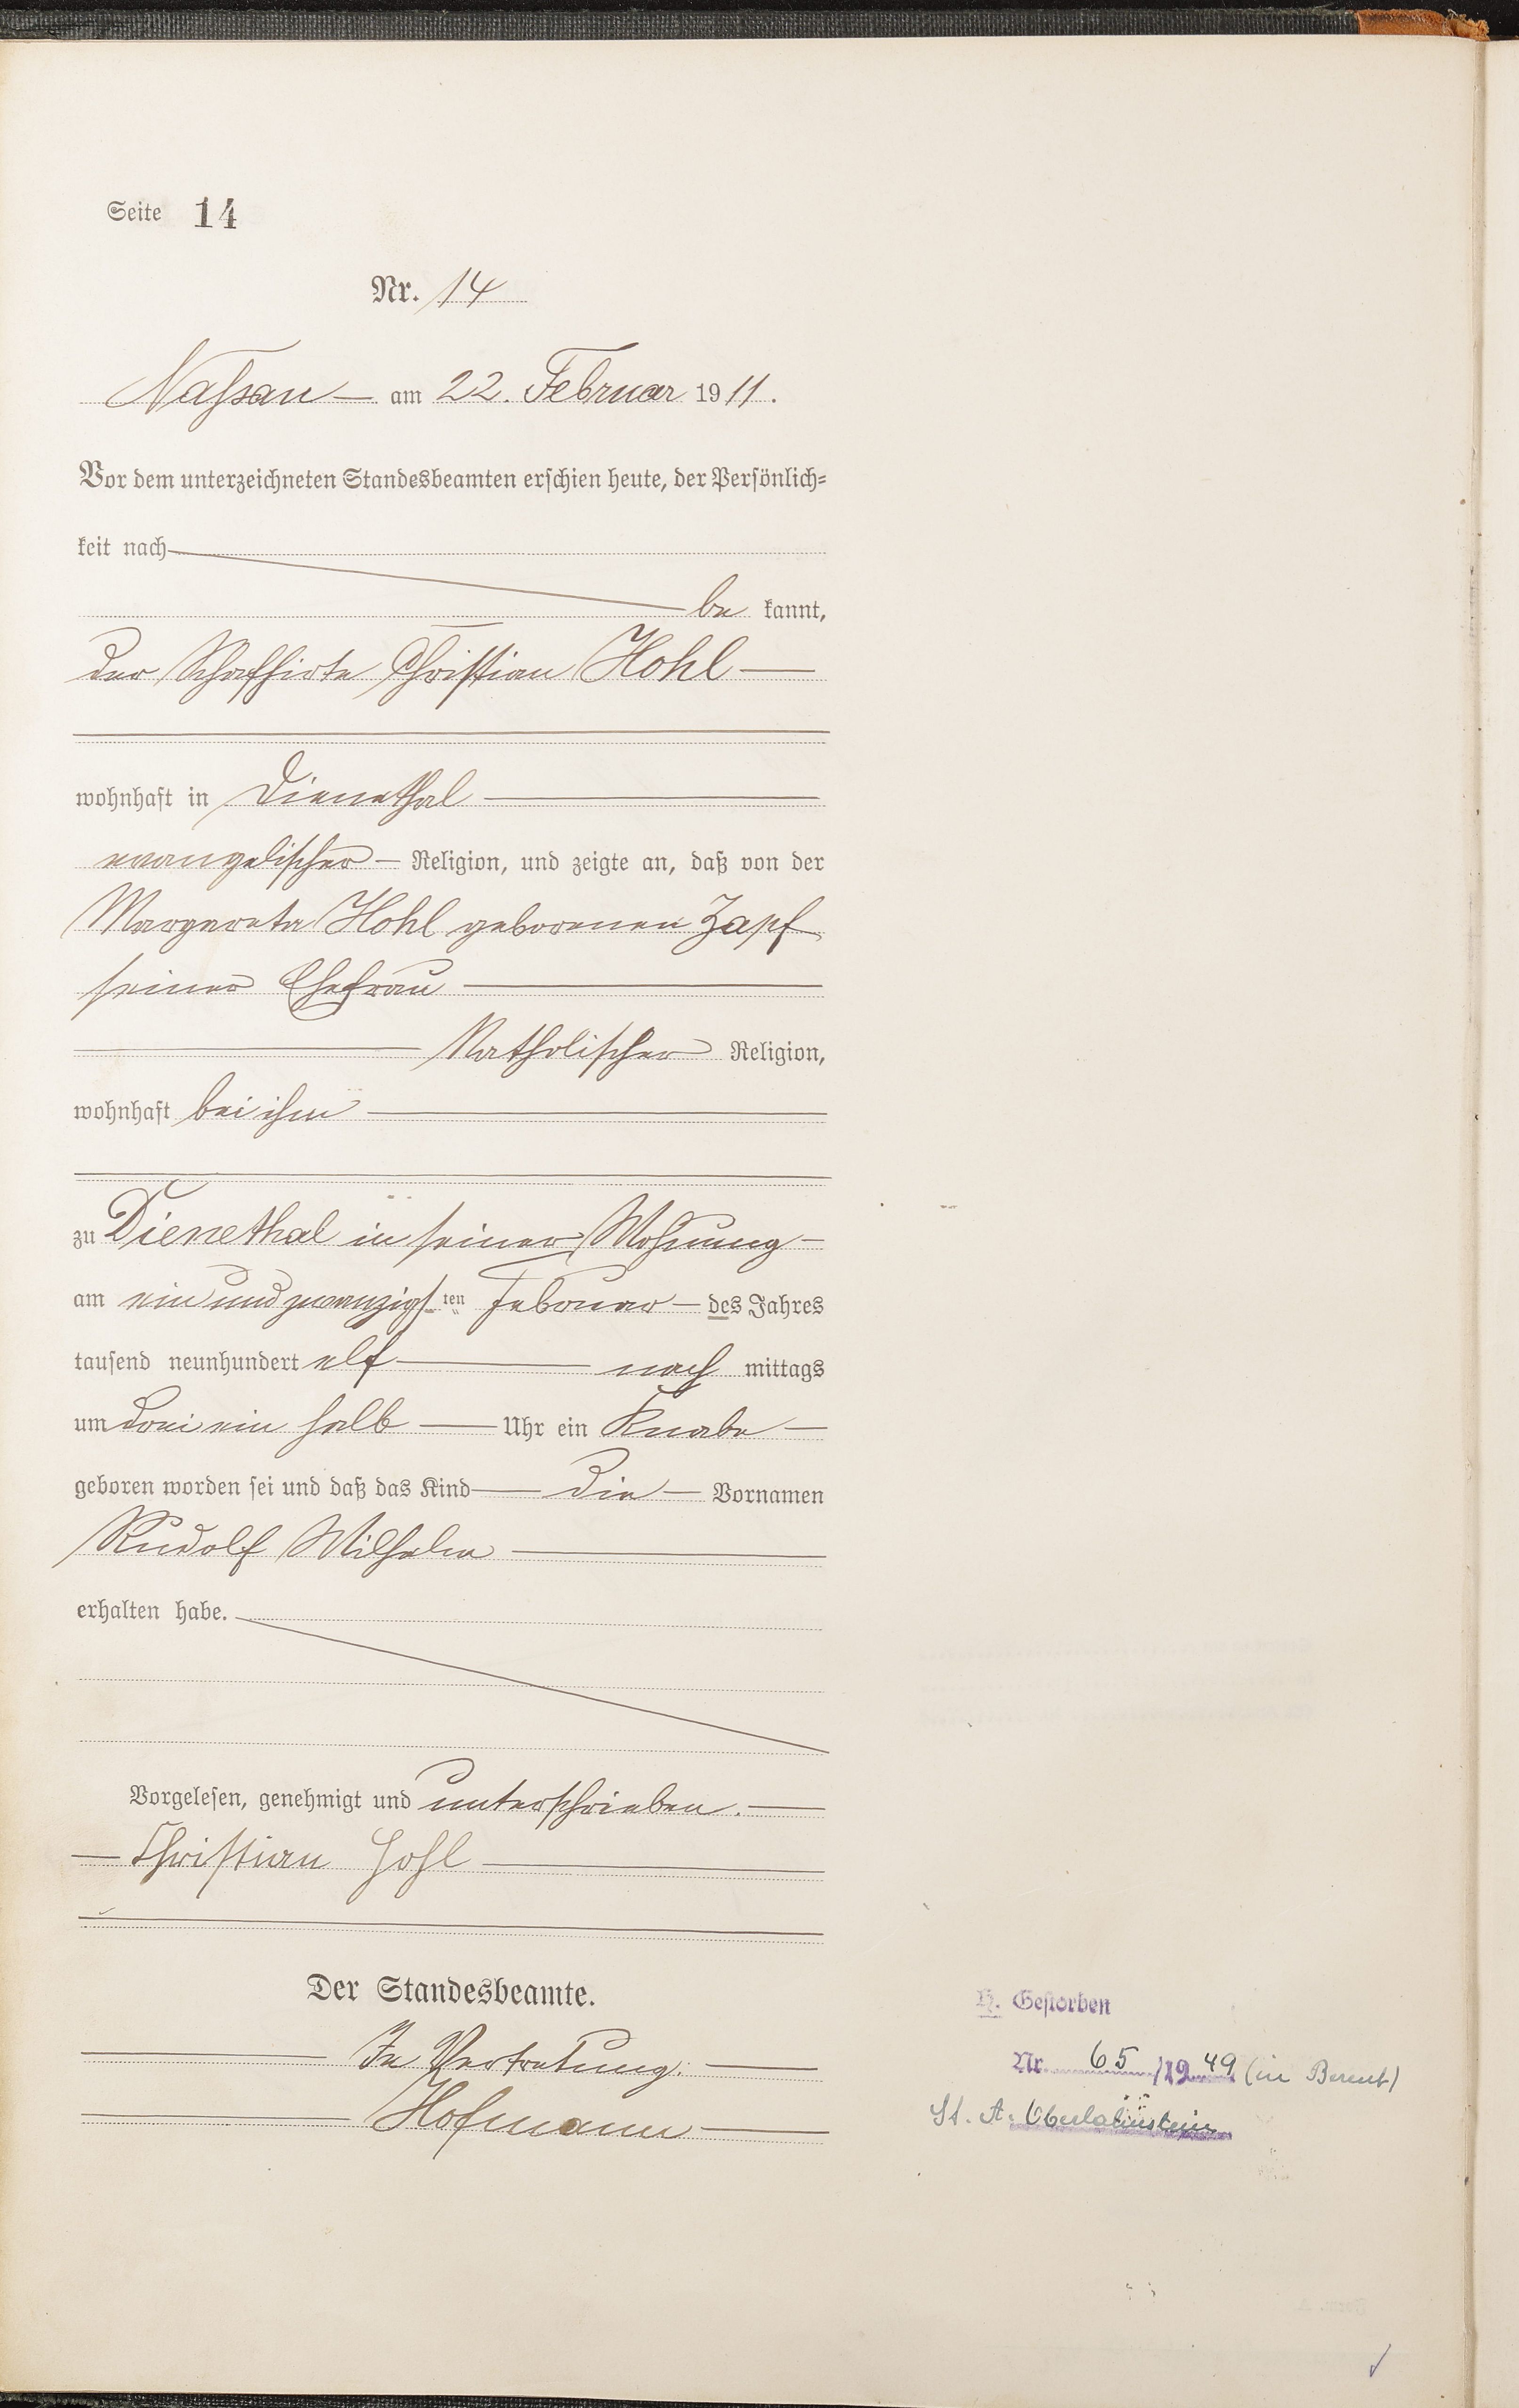 Seite 14
Nr. 14
Naſsau — am 22. Februar 1911.
Vor dem unterzeichneten Standesbeamten erſchien heute, der Perſönlich=
keit nach
be kannt,
der Schafhirte Christian Hohl
wohnhaft in Dienethal
evangelischer — Religion, und zeigte an, daß von der
Margareta Hohl geborenen Zapf
seiner Ehefrau
Katholischer Religion,
wohnhaft bei ihm
zu Dienethal in seiner Wohnung
am ein und zwanzigs ten Februar — des Jahres
tauſend neunhundert elf nach mittags
um drei ein halb — Uhr ein Knabe
geboren worden ſei und daß das Kind — die — Vornamen
Rudolf Wilhelm
erhalten habe.
Vorgeleſen, genehmigt und unterschrieben.
Christian Hohl
Der Standesbeamte.
In Vertretung:
Hofmann
H. Geſtorben
Nr. 65/1949 (in
St. A. Oberlahnstein